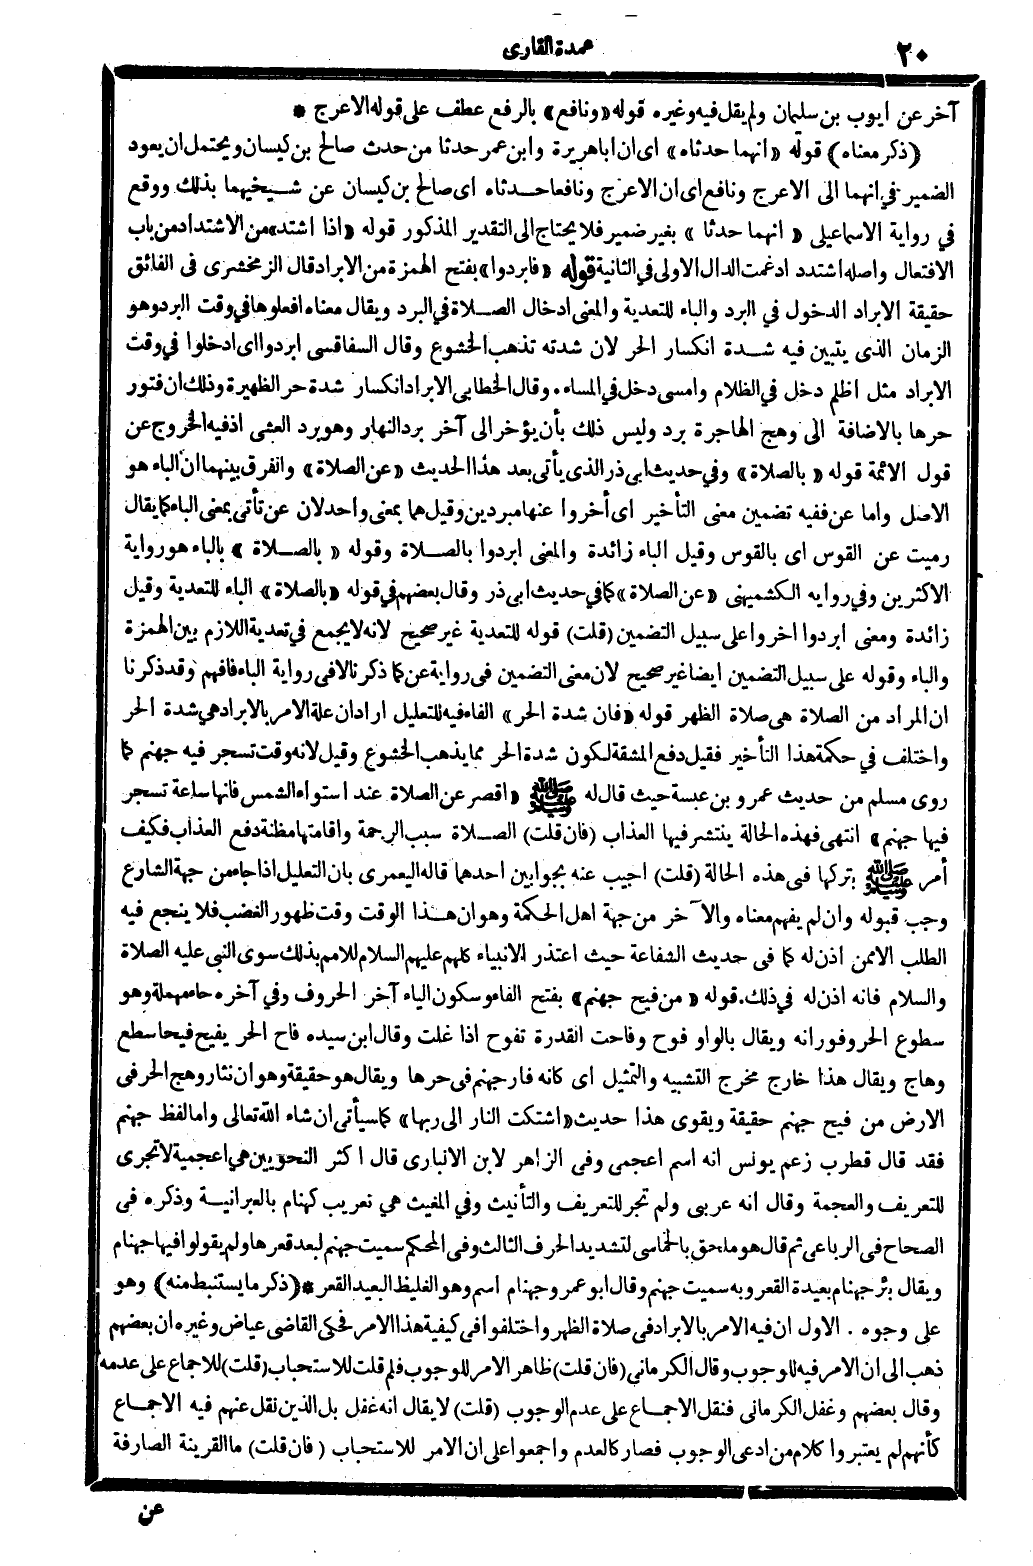 ٢٠
عمدة القارى
آخر عن ايوب بن سليمان ولم يقل فيه وغيره قوله «ونافع» بالرفع عطف على قوله الاعرج *
(ذكر معناه) قوله «انهما حدثاه» اى ان اباهريرة وابن عمر حدثا من حدث صالح بن كيسان ويحتمل ان يعود
الضمير فى انهما الى الاعرج ونافع اى ان الاعرج ونافعا حدثاه اى صالح بن كيسان عن شيخيهما بذلك ووقع
في رواية الاسماعيلى «انهما حدثا» بغير ضمير فلا يحتاج الى التقدير المذكور قوله «اذا اشتد» من الاشتداد من باب
الافتعال واصله اشتدد ادغمت الدال الاولى في الثانية قوله «فابردوا» بفتح الهمزة من الابراد قال الزمخشرى فى الفائق
حقيقة الابراد الدخول في البرد والباء للتعدية والمعنى ادخال الصلاة في البرد ويقال معناه افعلوها في وقت البرد وهو
الزمان الذى يتبين فيه شدة انكسار الحر لان شدته تذهب الخشوع وقال السفاقسى ابردوا اى ادخلوا في وقت
الابراد مثل اظلم دخل في الظلام وامسى دخل في المساء . وقال الخطابى الابراد انكسار شدة حر الظهيرة وذلك ان فتور
حرها بالاضافة الى وهج الهاجرة برد وليس ذلك بأن يؤخر الى آخر برد النهار وهو برد العشى اذ فيه الخروج عن
قول الائمة قوله «بالصلاة» وفي حديث ابى ذر الذى يأتى بعد هذا الحديث «عن الصلاة» والفرق بينهما ان الباء هو
الاصل واما عن ففيه تضمين معنى التأخير اى أخروا عنها مبردين وقيل هما بمعنى واحد لان عن تأتى بمعنى الباء كما يقال
رميت عن القوس اى بالقوس وقيل الباء زائدة والمعنى ابردوا بالصلاة وقوله «بالصلاة» بالباء هو رواية
الاكثرين وفي روايه الكشميهنى «عن الصلاة» كما في حديث ابى ذر وقال بعضهم في قوله «بالصلاة» الباء للتعدية وقيل
زائدة ومعنى ابردوا اخروا على سبيل التضمين (قلت) قوله للتعدية غير صحيح لانه لا يجمع في تعدية اللازم بين الهمزة
والباء وقوله على سبيل التضمين ايضا غير صحيح لان معنى التضمين فى رواية عن كما ذكرنا لا فى رواية الباء فافهم وقد ذكرنا
ان المراد من الصلاة هى صلاة الظهر قوله «فان شدة الحر» الفاء فيه للتعليل اراد ان علة الامر بالابراد هي شدة الحر
واختلف في حكمة هذا التأخير فقيل دفع المشقة لكون شدة الحر مما يذهب الخشوع وقيل لانه وقت تسجر فيه جهنم كما
روى مسلم من حديث عمرو بن عبسة حيث قال له ﷺ «اقصر عن الصلاة عند استواء الشمس فانها ساعة تسجر
فيها جهنم» انتهى فهذه الحالة ينتشر فيها العذاب (فان قلت) الصلاة سبب الرحمة واقامتها مظنة دفع العذاب فكيف
أمر ﷺ بتركها فى هذه الحالة (قلت) اجيب عنه بجوابين احدهما قاله اليعمرى بان التعليل اذا جاء من جهة الشارع
وجب قبوله وان لم يفهم معناه والآخر من جهة اهل الحكمة وهو ان هذا الوقت وقت ظهور الغضب فلا ينجع فيه
الطلب الا ممن اذن له كما فى حديث الشفاعة حيث اعتذر الانبياء كلهم عليهم السلام للامم بذلك سوى النبى عليه الصلاة
والسلام فانه اذن له في ذلك . قوله «من فيح جهنم» بفتح الفاء وسكون الياء آخر الحروف وفي آخره حاء مهملة وهو
سطوع الحر وفورانه ويقال بالواو فوح وفاحت القدرة تفوح اذا غلت وقال ابن سيده فاح الحر يفيح فيحا سطع
وهاج ويقال هذا خارج مخرج التشبيه والتمثيل اى كانه فار جهنم فى حرها ويقال هو حقيقة وهو ان نثار وهج الحر فى
الارض من فيح جهنم حقيقة ويقوى هذا حديث «اشتكت النار الى ربها» كما سيأتى ان شاء الله تعالى واما لفظ جهنم
فقد قال قطرب زعم يونس انه اسم اعجمى وفى الزاهر لابن الانبارى قال اكثر النحويين هي اعجمية لا تجرى
للتعريف والعجمة وقال انه عربى ولم تجر للتعريف والتأنيث وفي المغيث هي تعريب كهنام بالعبرانية وذكره فى
الصحاح فى الرباعى ثم قال هو ملحق بالخماسى لتشديد الحرف الثالث وفى المحكم سميت جهنم لبعد قعرها ولم يقولوا فيها جهنام
ويقال بئر جهنام بعيدة القعر وبه سميت جهنم وقال ابو عمرو جهنام اسم وهو الغليظ البعيد القعر * (ذكر ما يستنبط منه) وهو
على وجوه . الاول ان فيه الامر بالابراد فى صلاة الظهر واختلفوا فى كيفية هذا الامر فحكى القاضى عياض وغيره ان بعضهم
ذهب الى ان الامر فيه للوجوب وقال الكرمانى (فان قلت) ظاهر الامر للوجوب فلم قلت للاستحباب (قلت) للاجماع على عدمه
وقال بعضهم وغفل الكرمانى فنقل الاجماع على عدم الوجوب (قلت) لا يقال انه غفل بل الذين نقل عنهم فيه الاجماع
كأنهم لم يعتبروا كلام من ادعى الوجوب فصار كالعدم واجمعوا على ان الامر للاستحباب (فان قلت) ما القرينة الصارفة
عن